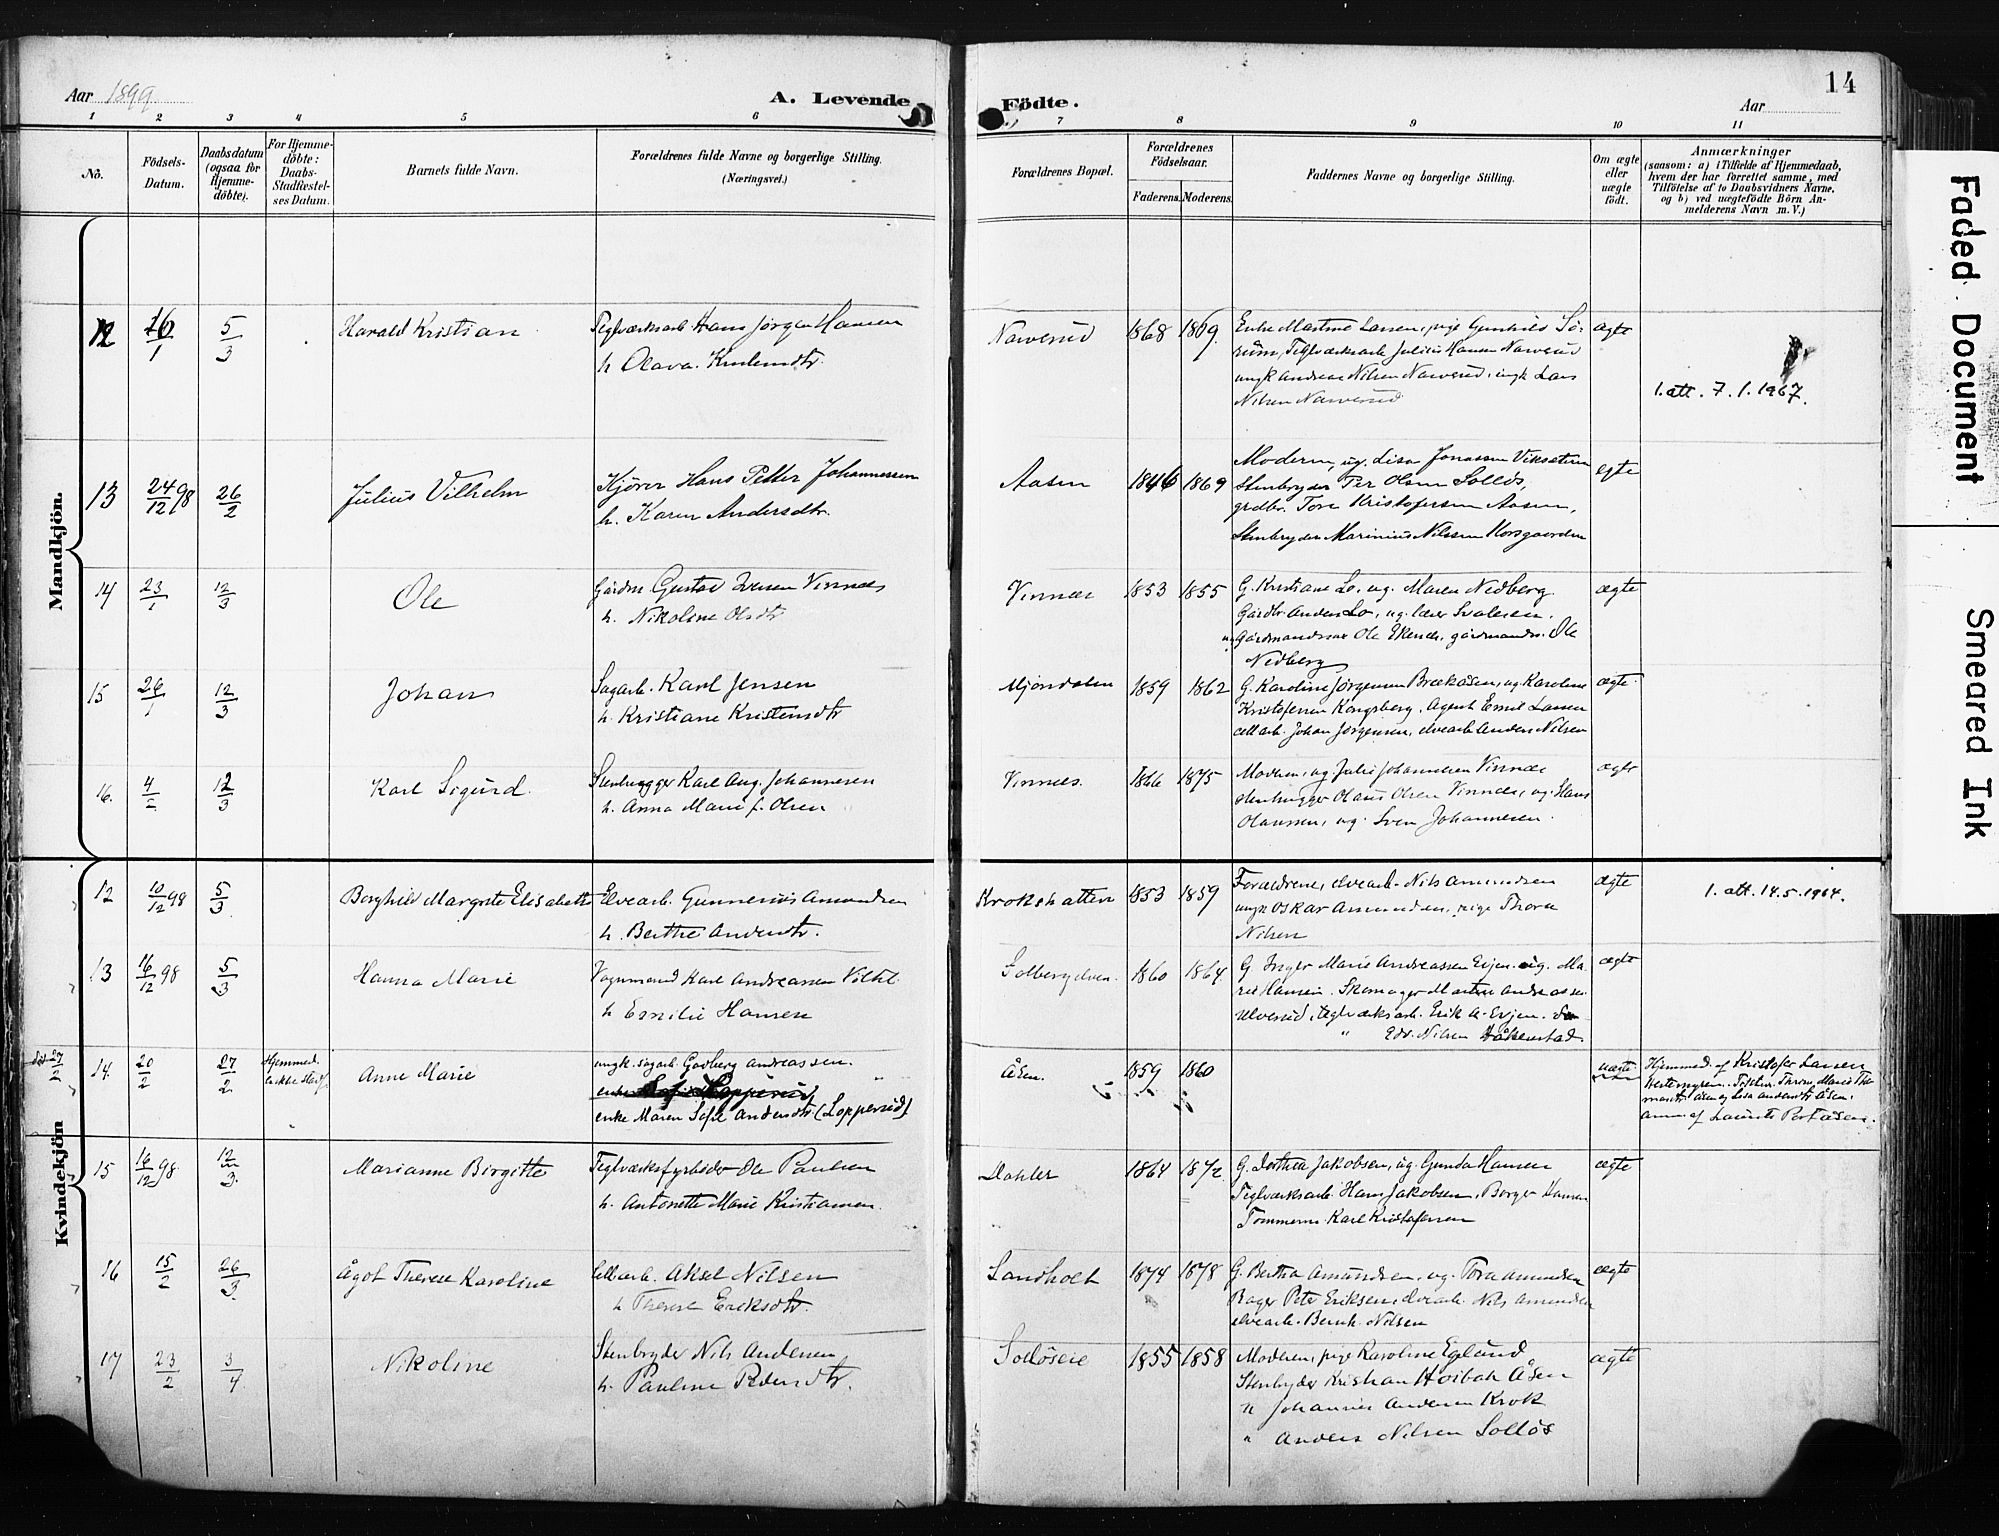 Aar 1899.
A. Levende
Födte.
Aar
14
1
2
3
4
5
6
7
8
9
10
11
No.
Födsels-
Datum.
Daabsdatum
(ogsaa for
Hjemme-
döbte).
For Hjemme-
döbte:
Daabs-
Stadfæstel-
ses Datum.
Barnets fulde Navn.
Forældrenes fulde Navne og borgerlige Stilling.
(Næringsvei.)
Forældrenes Bopæl.
Forældrenes
Födselsaar.
Faderens.
Moderens.
Faddernes Navne og borgerlige Stilling.
Om ægte
eller
uægte
födt.
Anmærkninger
(saasom: a) i Tilfælde af Hjemmedaab,
hvem der har forrettet samme, med
Tilföielse af to Daabsvidners Navne,
og b) ved uægtefödte Börn An-
melderens Navn m. V.)
Mandkjön.
12 16/1 5/3 Harald Kristian
Teglværksarb Hans Jörgen Hansen
h. Olava
Narverud 1868 1869
Enke Martine Larsen, pige Gunhild Sö-
rum, Teglværksarb Julius Hansen Narverud
ungk Andreas Nilsen Narverud, ungk Lars
Nilsen Narverud
ægte
1. att. 7.1.1967.
13 24/12 98 26/2 Julius Vilhelm
Kjörer Hans Petter Johannessen
h. Karen Andersdtr.
Aasen 1846 1869
Moderen, ug. Lisa Jonassen
Stenbryder Per Olsen Sollös,
grdbr. Tore Kristofersen Aasen,
Stenbryder Marinius Nilssen Korsgaarden
egte
14 23/1 12/3 Ole
Gårdm Gustav Iversen Vinnæs
h. Nikoline Olsdtr
Vinnæs 1853 1855
G. Kristiane Lo, ug. Maren Nedberg
Gårdbr. Anders Lo, ug. lærer
Gårdmandssøn Ole Ekenes, gårdmands. Ole
Nedberg
ægte
15 26/1 12/3 Johan
Sagarb. Karl Jensen
h. Kristiane Kristensdtr
Mjöndalen 1859 1862
G. Karoline Jörgensen Brækåsen, ug. Karoline
Kristofersen Kongsberg, Agent Emil Larsen
cellarb. Johan Jörgensen, elvearb Anders Nilsen
ægte
16. 4/2 12/3 Karl Sigurd.
Stenhugger Karl Aug. Johannesen
h. Anna Marie f. Olsen
Vinnæs. 1866 1875
Moderen, ug Julie Johannesen Vinnæs
stenhugger Olaus Olsen Vinnæs, ug. Hans
Olaussen, ug. Sven Johannesen.
ægte
Kvindekjön
12 10/12 98 5/3 Borghild Margrete Elisabeth
Elvearb. Gunnerius Amundsen
h. Berthe Andersdtr.
Krokshatten 1853 1859
Forældrene, elvearb. Nils Amundsen
ungk Oskar Amundsen, pige Thora
Nilsen
ægte
1. att. 14.5.1964.
13 16/12 98 5/3 Hanna Marie
Vognmand Karl Andreassen
h Emilie Hansen
Solbergelven. 1860 1864
G. Inger Marie Andreassen Evjen. ug. Ma-
rie Hansen. Skomager Martin Andreasse
Ulverud, teglværksarb. Erik A. Evjen.
" Edv. Nilsen Håkenstad
ægte
14. 20/2 27/2 Hjemmed.
Anne Marie
ungk. sagarb Godberg Andreassen.
enke Maren Sofie Andersdtr (Lopperud)
Åsen. 1859 1860
uægte
Hjemmed. af Kristofer Larsen
15 16/12 98 12/3 Marianne Birgitte
Teglværksfyrbøder Ole Paulsen
h. Antonette Marie Kristiansen.
Dahler 1864 1872
G. Dorthea Jakobsen, ug. Gunda Hansen
Teglværksarb. Hans Jakobsen, Borger Hansen
Tømmerm Karl Kristofersen
ægte
16 15/2 26/3 Ågot Therese Karoline
Cellearb. Aksel Nilsen
h Therese Eriksdtr.
Sandholt 1874 1878
G. Bertha Amundsen, ug. Tora Amundsen
Bager Peter Eriksen, elvearb. Nils Amundsen
elvearb. Bernh. Nilsen
ægte
17 23/2 3/4 Nikoline
Stenbryder Nils Andersen
h. Pauline Pedersdtr.
Sollöseie 1855 1858
Moderen, pige Karoline Eglund
Stenbryder Kristian Hoibak Åsen
" Johannes Andersen Krok
" Anders Nilsen Sollös
ægte
Faded Document
Smeared Ink